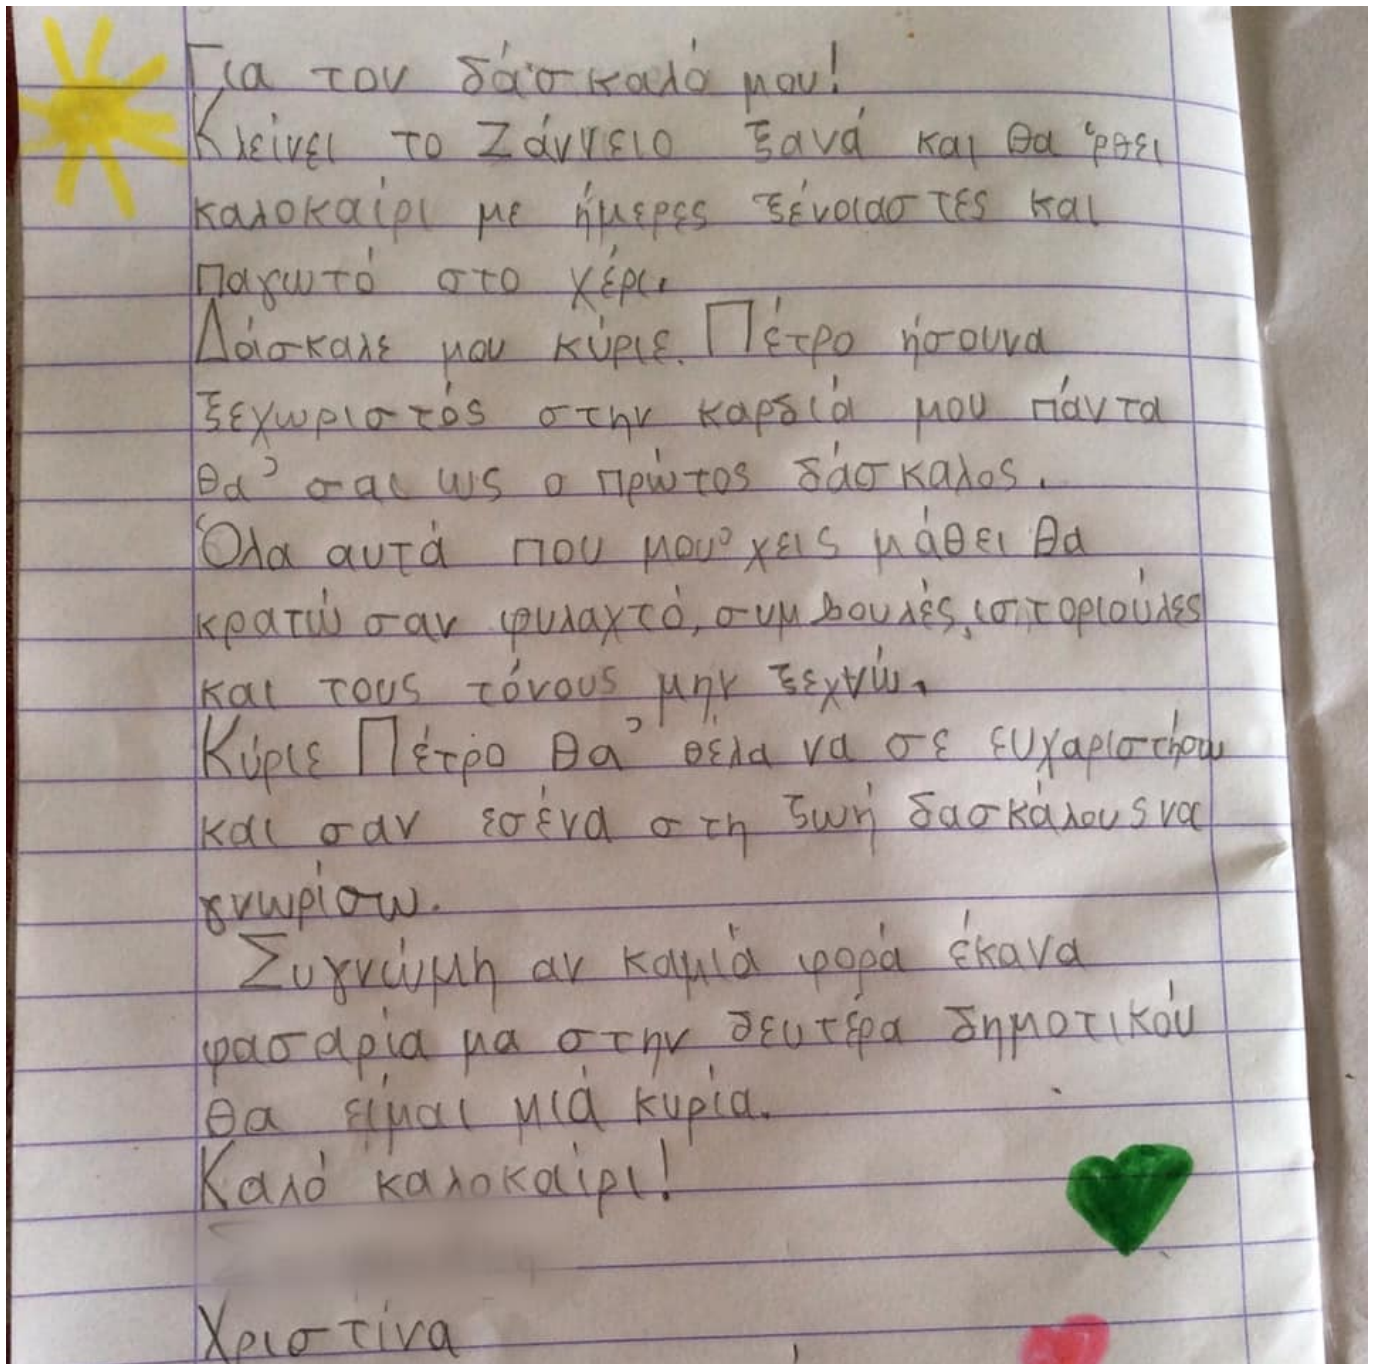 Για τον δάσκαλό μου!
Κλείνει το Ζάννειο ξανά και θα 'ρθει
καλοκαίρι με ήμερες ξένοιαστες και
παγωτό στο χέρι.
Δάσκαλε μου κύριε Πέτρο ήσουνα
ξεχωριστός στην καρδιά μου πάντα
θα' σαι ως ο πρώτος δάσκαλος.
Όλα αυτά που μου' χεις μάθει θα
κρατώ σαν φυλαχτό, συμβουλές, ιστοριούλες
και τους τόνους μην ξεχνώ.
Κύριε Πέτρο θα' θέλα να σε ευχαριστήσω
και σαν εσένα στη ζωή δασκάλους να
γνωρίσω.
Συγνώμη αν καμιά φορά έκανα
φασαρία μα στην δευτέρα δημοτικόυ
θα είμαι μιά κυρία.
Καλό καλοκαίρι!
Χριστίνα